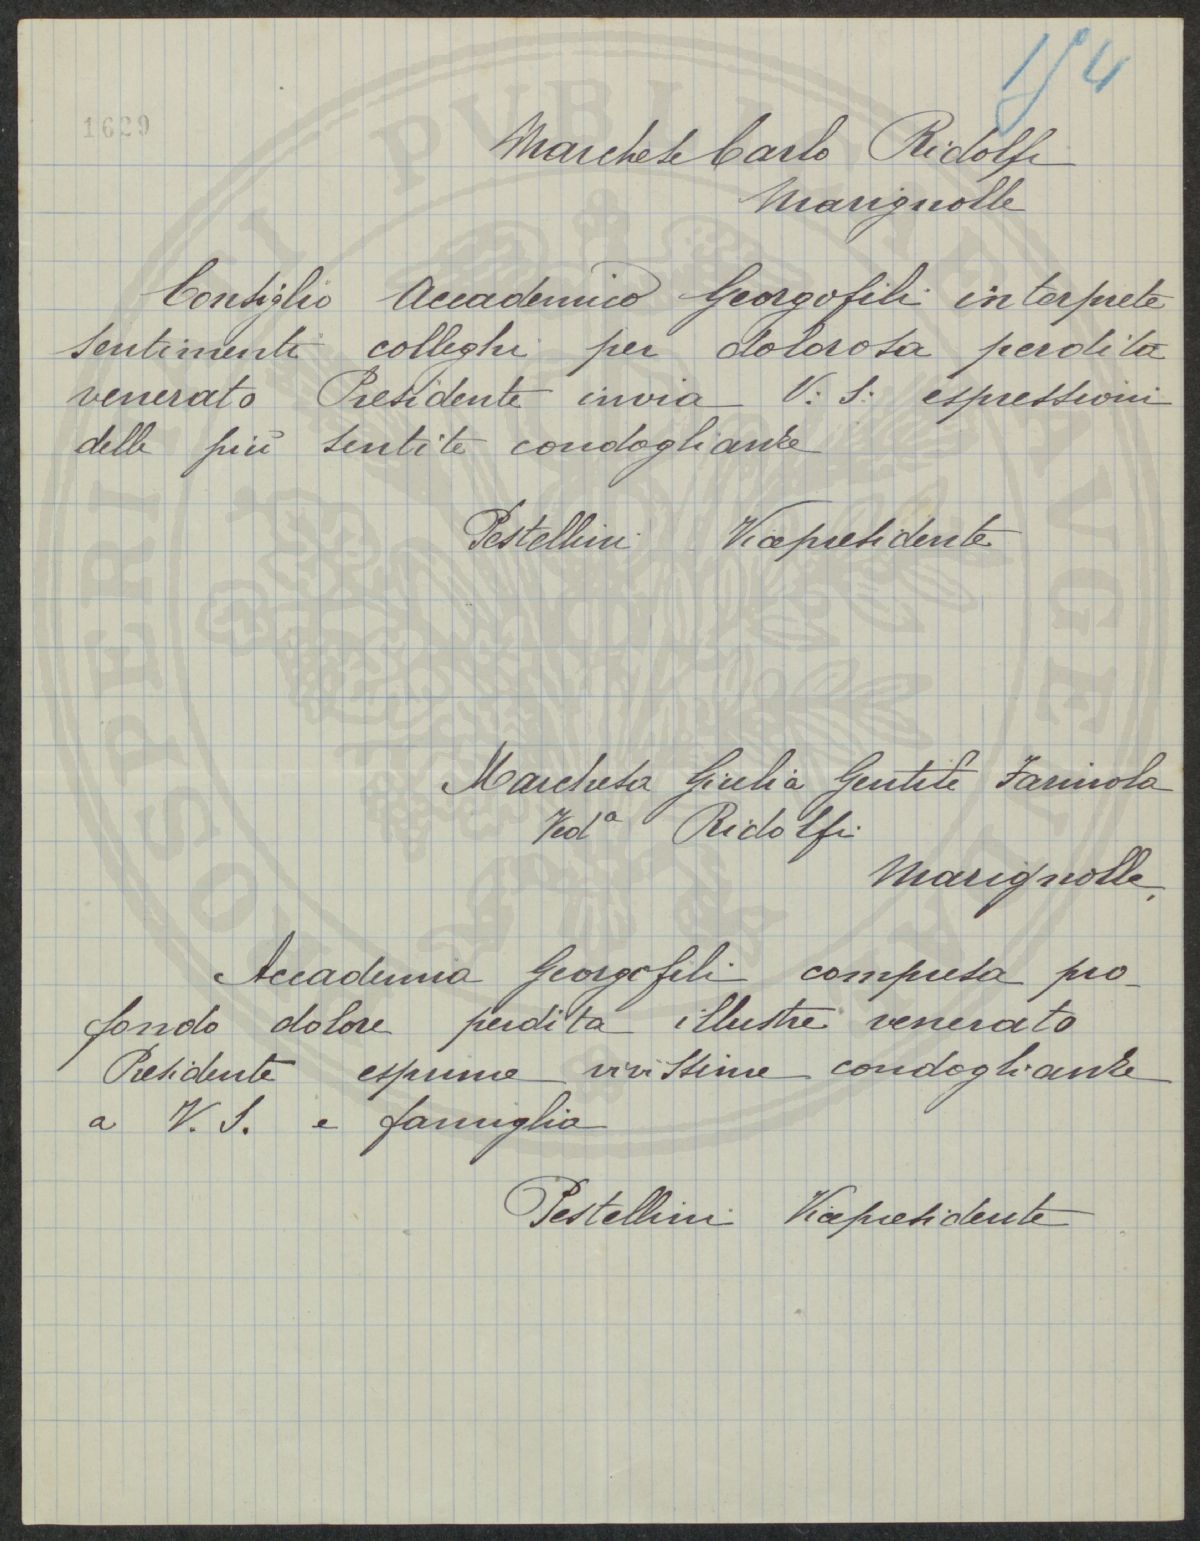 154
1629
Marchese Carlo Ridolfi
Marignolle
Consiglio Accademico Georgofili interprete
sentimenti colleghi per dolorosa perdita
venerato Presidente invia V: S: espressioni
delle più sentite condoglianze
Pestellini Vicepresidente
Marchesa Giulia Gentile Farinola
Ved.a Ridolfi
Marignolle.
Accademia Georgofili compresa pro-
fondo dolore perdita illustre venerato
Presidente esprime vivissime condoglianze
a V. S. e famiglia
Pestellini Vicepresidente
PROSPERITATI PUBLICAE AUGENDAE